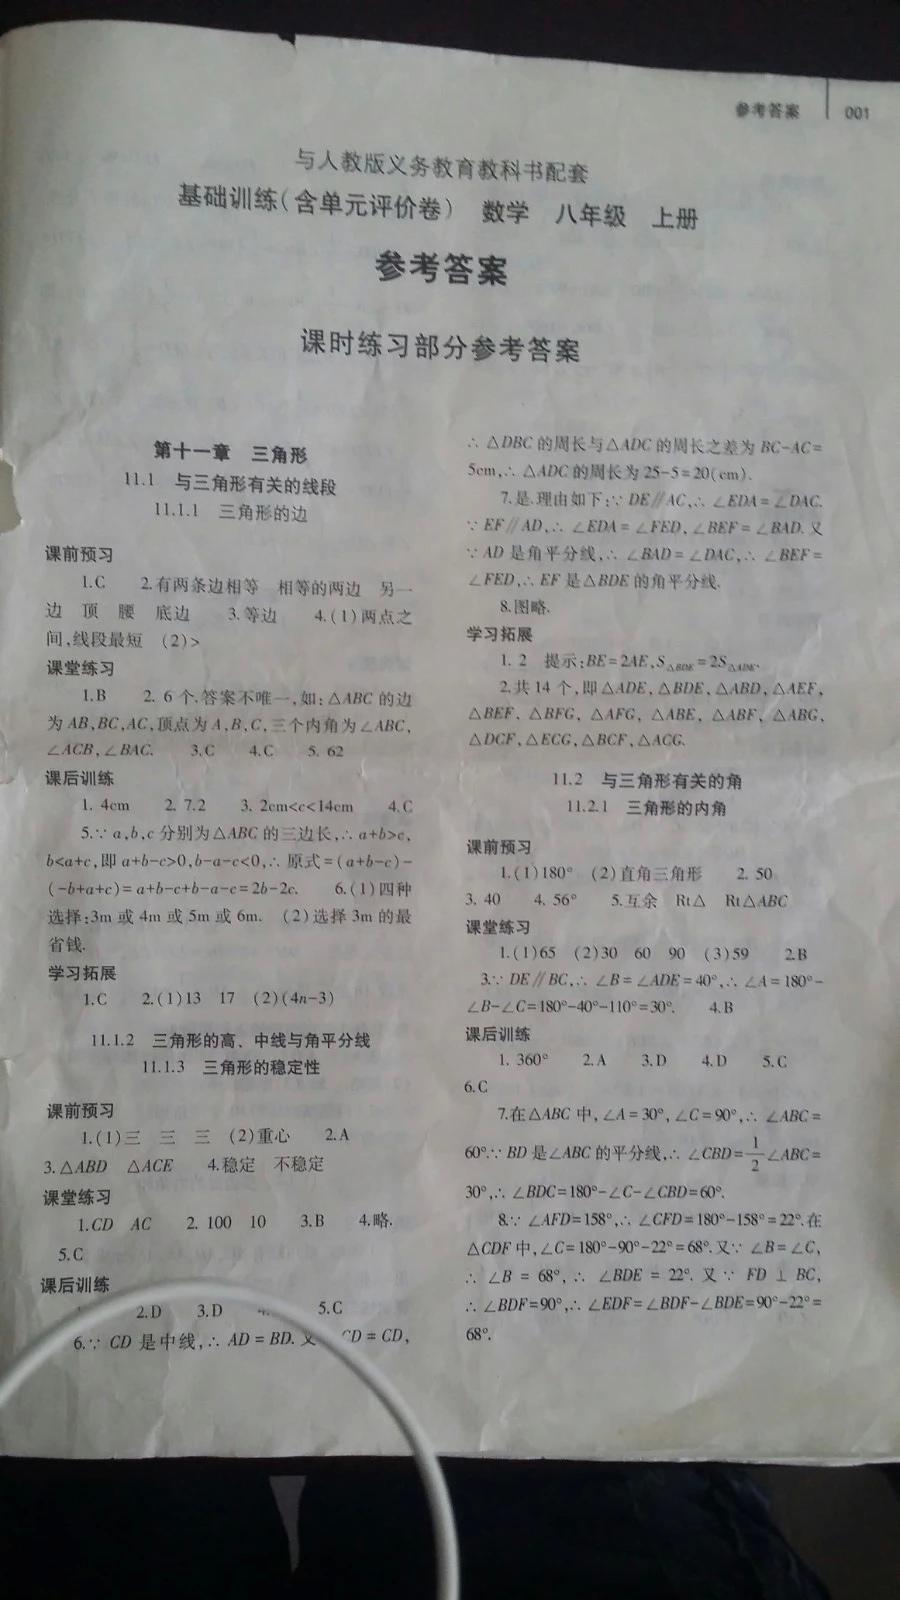 参考答案 001
与人教版义务教育教科书配套
基础训练(含单元评价卷) 数学 八年级 上册
参考答案
课时练习部分参考答案
第十一章 三角形
11.1 与三角形有关的线段
11.1.1 三角形的边
课前预习
1.C 2.有两条边相等 相等的两边 另一
边 顶 腰 底边 3.等边 4.(1)两点之
间,线段最短 (2)>
课堂练习
1.B 2. 6个.答案不唯一,如:△ABC的边
为AB,BC,AC,顶点为A,B,C,三个内角为∠ABC,
∠ACB,∠BAC. 3.C 4.C 5. 62
课后训练
1. 4cm 2. 7.2 3. 2cm<c<14cm 4.C
5.∵ a,b,c分别为△ABC的三边长,∴ a+b>c,
b<a+c,即a+b-c>0,b-a-c<0,∴ 原式=(a+b-c)-
(-b+a+c)=a+b-c+b-a-c=2b-2c. 6.(1)四种
选择:3m或4m或5m或6m. (2)选择3m的最
省钱.
学习拓展
1.C 2.(1)13 17 (2)(4n-3)
11.1.2 三角形的高、中线与角平分线
11.1.3 三角形的稳定性
课前预习
1.(1)三 三 三 (2)重心 2.A
3.△ABD △ACE 4.稳定 不稳定
课堂练习
1.CD AC 2. 100 10 3.B 4.略.
5.C
课后训练
2.D 3.D 5.C
6.∵ CD是中线,∴ AD=BD. 又 CD=CD,
∴ △DBC的周长与△ADC的周长之差为BC-AC=
5cm,∴ △ADC的周长为25-5=20(cm).
7.是.理由如下:∵ DE∥AC,∴ ∠EDA=∠DAC.
∵ EF∥AD,∴ ∠EDA=∠FED,∠BEF=∠BAD. 又
∵ AD是角平分线,∴ ∠BAD=∠DAC,∴ ∠BEF=
∠FED,∴ EF是△BDE的角平分线.
8.图略.
学习拓展
1. 2 提示:BE=2AE,S△BDE=2S△ADE.
2.共14个,即△ADE,△BDE,△ABD,△AEF,
△BEF,△BFG,△AFG,△ABE,△ABF,△ABG,
△DCF,△ECG,△BCF,△ACG.
11.2 与三角形有关的角
11.2.1 三角形的内角
课前预习
1.(1)180° (2)直角三角形 2. 50
3. 40 4. 56° 5.互余 Rt△ Rt△ABC
课堂练习
1.(1)65 (2)30 60 90 (3)59 2.B
3.∵ DE∥BC,∴ ∠B=∠ADE=40°,∴ ∠A=180°-
∠B-∠C=180°-40°-110°=30°. 4.B
课后训练
1. 360° 2.A 3.D 4.D 5.C
6.C
7.在△ABC中,∠A=30°,∠C=90°,∴ ∠ABC=
60°.∵ BD是∠ABC的平分线,∴ ∠CBD=1/2∠ABC=
30°,∴ ∠BDC=180°-∠C-∠CBD=60°.
8.∵ ∠AFD=158°,∴ ∠CFD=180°-158°=22°.在
△CDF中,∠C=180°-90°-22°=68°.又∵ ∠B=∠C,
∴ ∠B=68°,∴ ∠BDE=22°. 又∵ FD⊥BC,
∴ ∠BDF=90°,∴ ∠EDF=∠BDF-∠BDE=90°-22°=
68°.